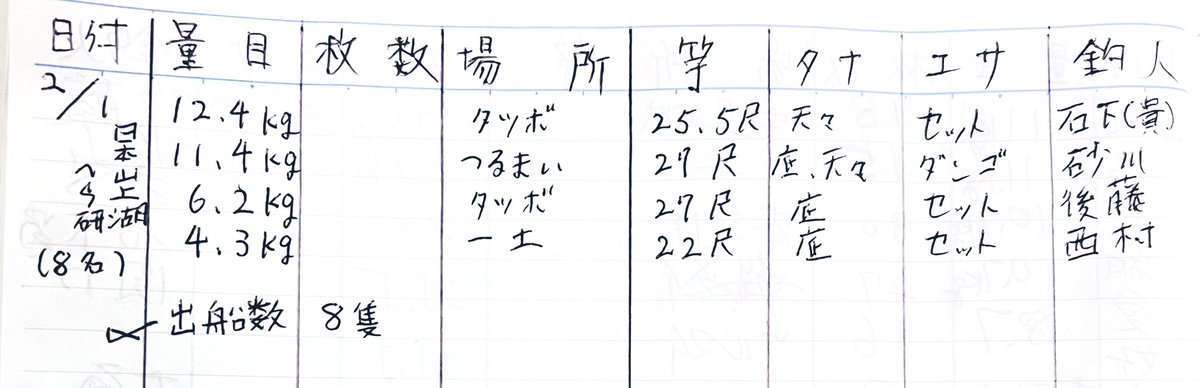 日付 量目 枚数 場所 竿 タナ エサ 釣人
2/1 12.4kg タツボ 25.5尺 天々 セット 石下(貴)
11.4kg つるまい 27尺 底、天々 ダンゴ 砂川
6.2kg タツボ 27尺 底 セット 後藤
4.3kg 一土 22尺 底 セット 西村
日本
山上湖
へら研
(8名)
出船数 8隻